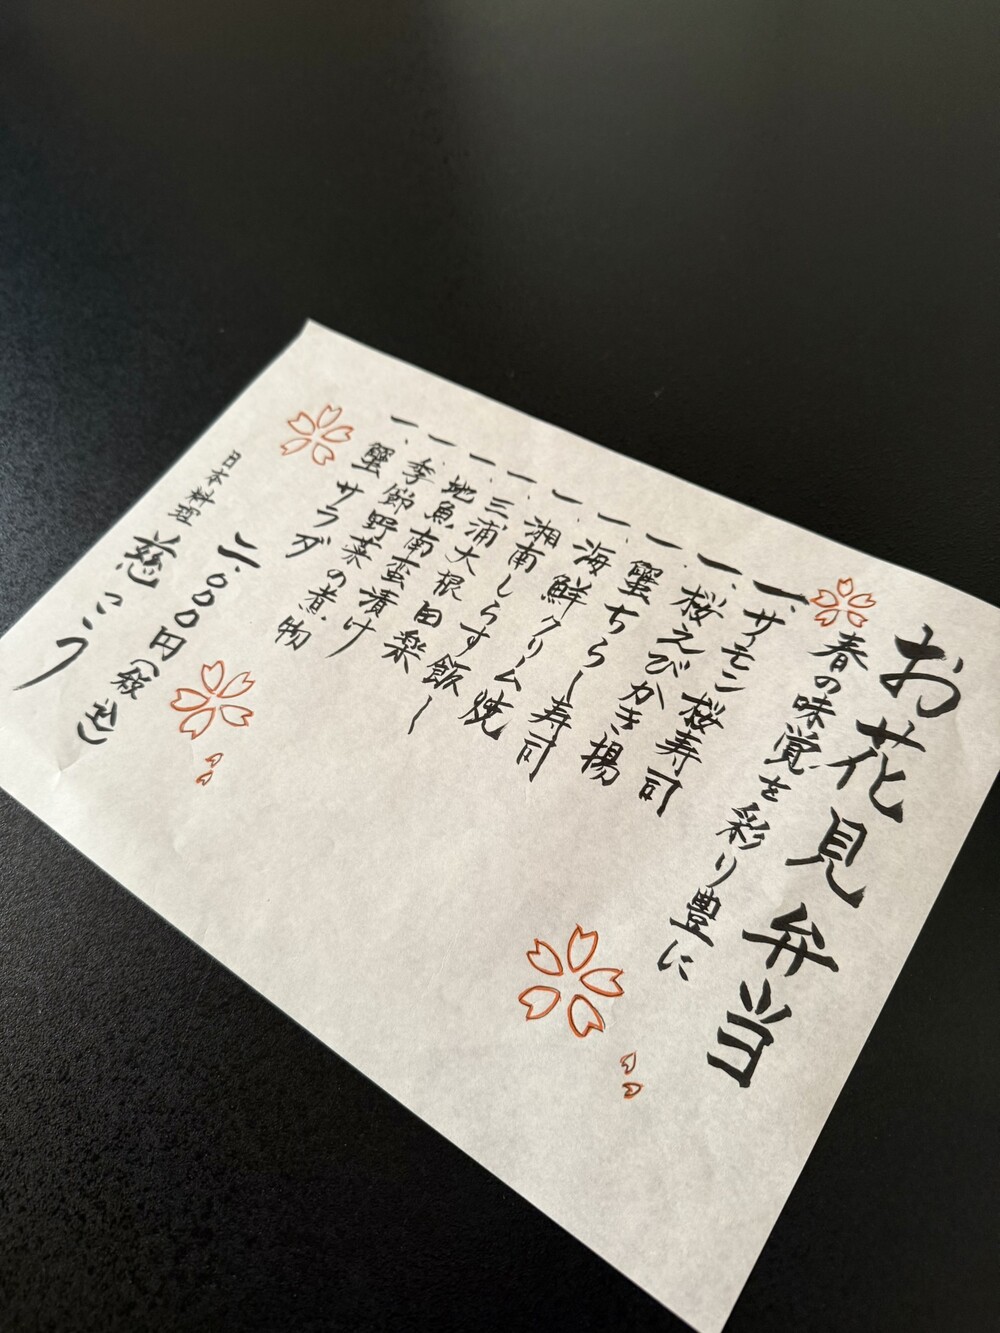 お花見弁当
春の味覚を彩り豊に
一、サーモン桜寿司
一、桜えびかき揚
一、蟹ちらし寿司
一、海鮮クリーム焼
一、湘南しらす飯し
一、三浦大根田楽
一、地魚南蛮漬け
一、季節野菜の煮物
一、蟹サラダ
二.000円(税込)
日本料理 慈こう